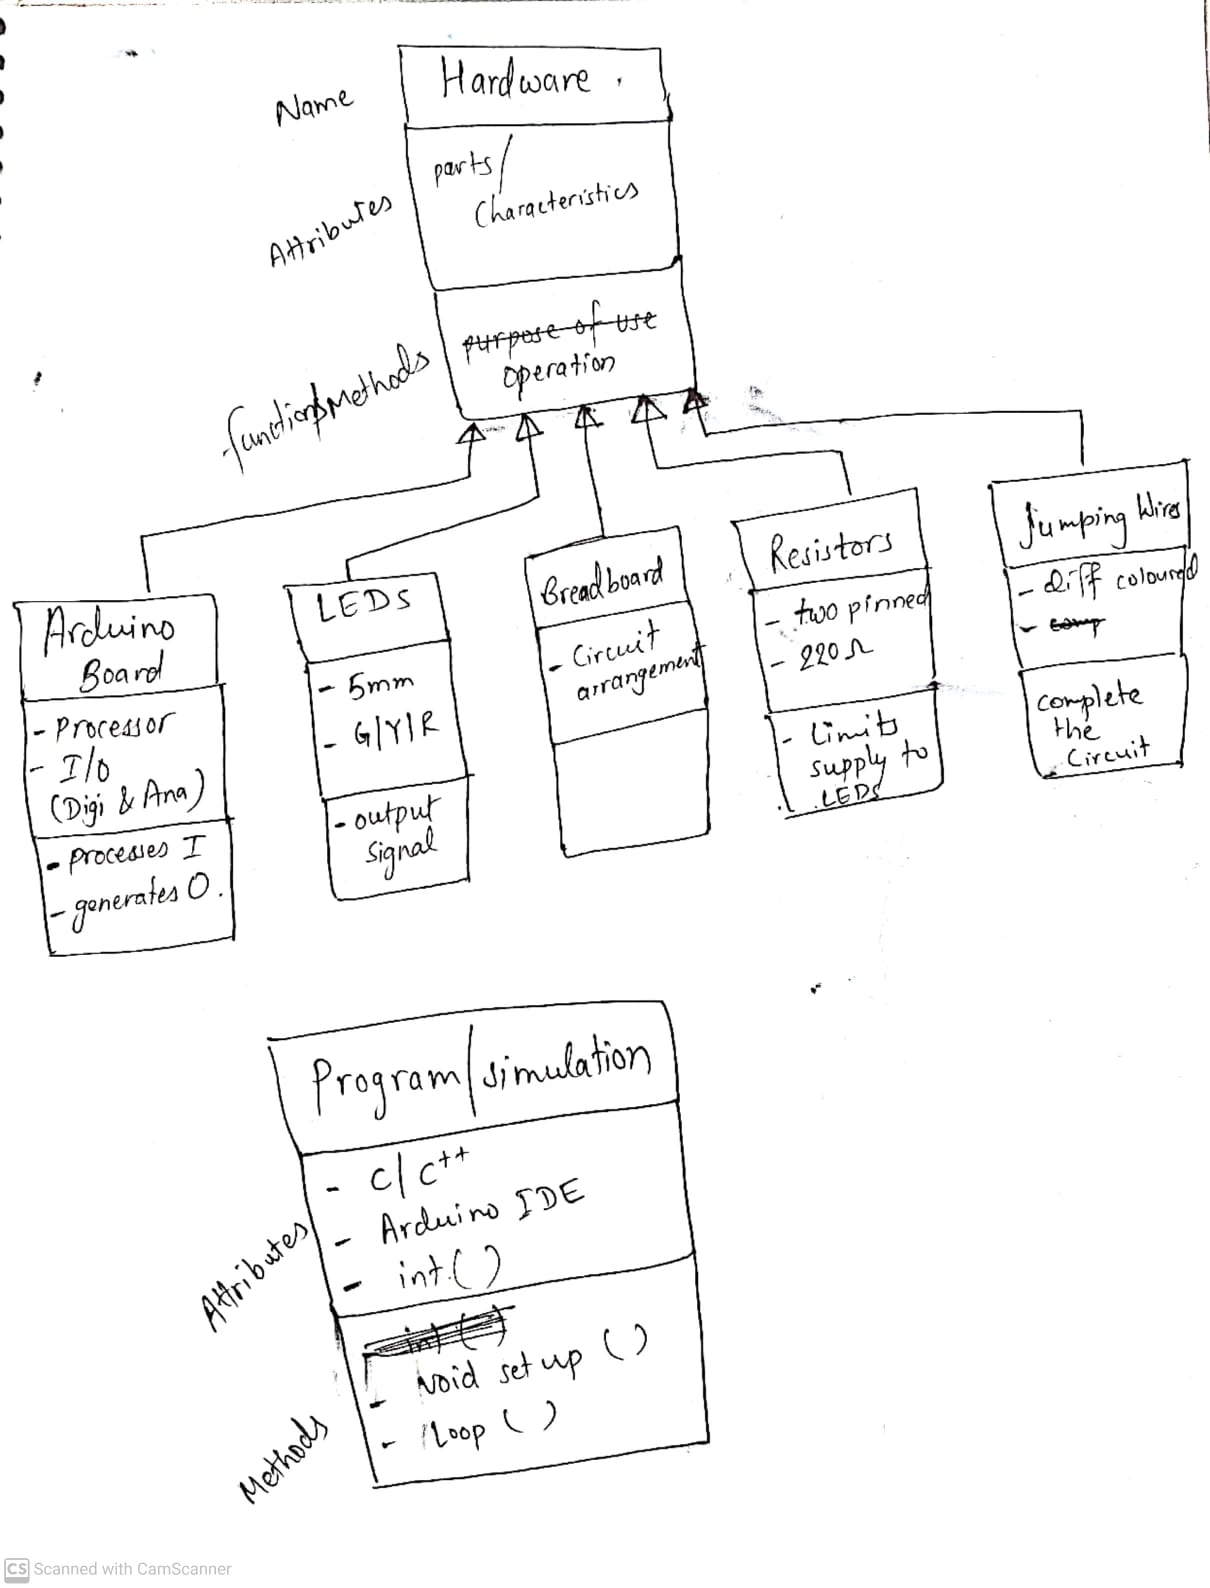 Name
Hardware
Attributes
parts/
Characteristics
functions/Methods
purpose of use
operation
Arduino
Board
- Processor
- I/O
(Digi & Ana)
- processes I
- generates O.
LEDS
- 5mm
- G/Y/R
- output
signal
Breadboard
- Circuit
arrangement
Resistors
- two pinned
- 220 Ω
- Limits
supply to
LEDS
Jumping Wires
- diff coloured
- comp
complete
the
Circuit
Program/simulation
Attributes
- C/C++
- Arduino IDE
- int()
Methods
int()
- void setup ()
- loop ()
CS Scanned with CamScanner